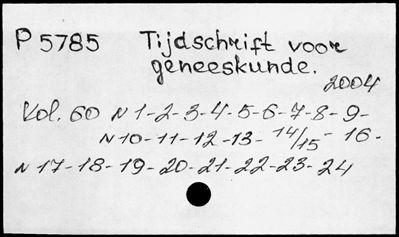 P 5785 Tijdschrift voor
geneeskunde.
2004
Vol. 60 N 1-2-3-4-5-6-7-8-9-
N 10-11-12-13- 14/15 - 16-
N 17-18-19-20-21-22-23-24